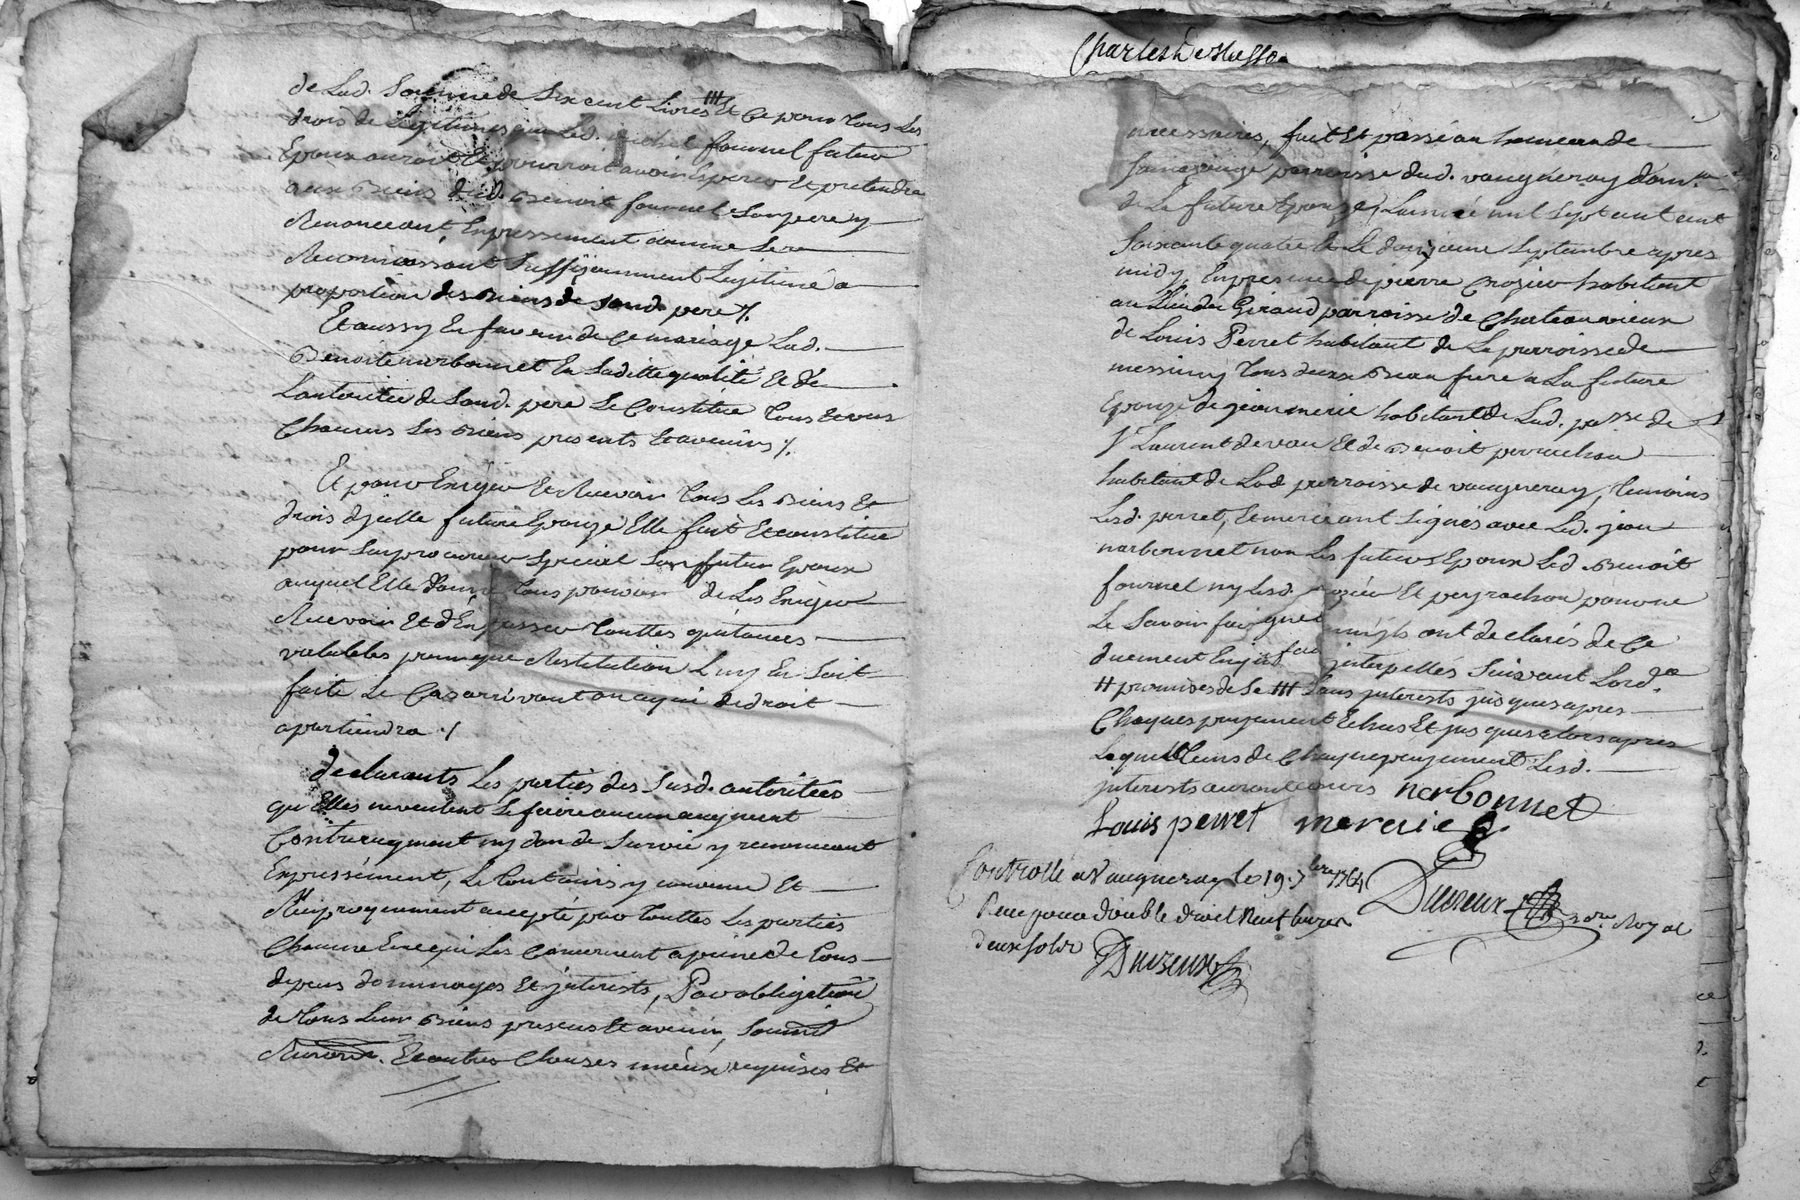 de Lad. Somme de Six cent Livres ttt Et Ce pour Tous Les
drois de Legitimes que Led. michel fournel futur
Epoux auroit Et pourroit avoir Esperer Et pretendre
aux Biens dud. Benoit fournel Son pere y
Renonceant Expressement comme Se
Reconnoissant Suffisamment Legitimé a
proportion des Biens de Sond. pere ./.
Et aussy En faveur de Ce mariage Lad.
Benoite narbonnet En Sa ditte qualité Et de
Lautorité de Sond. pere Se Constitue Tous Et uns
Chacuns Ses Biens presents Et avenirs ./.
Et pour Exiger Et Recevoir Tous Les Biens Et
drois dycelle future Epouze Elle fait Et constitue
pour Son procureur Special Son futur Epoux
auquel Elle donne Tous pouvoir de Les Exiger
Recevoir Et dEn passer Touttes quitances
valables pourveque Restitution Luy En Soit
faite Le Cas arrivant ou a qui de droit
apartiendra ./
declarants Les parties des Susd. autoritées
qu'Elles ne veulent Se faire aucun augment
Contre augment ny don de Survie y renonceant
Expressément, Le Tout ainsy convenu Et
Reciproquement accepté par Touttes Les parties
Chacune En ce qui Les Concernent a peine de Tous
depens dommages Et jnterests, Par obligation
de Tous Leur Biens presens Et avenir, Soumis
Renon. Et autres Clauses mieux requises Et
Charles De
necessaires, fait Et passé au hameau de
parroisse dud. vaugneray dom.
de La future Epouze, Lan mil Sept cent
Soixante quatre Et Le douzieme Septembre apres
midy En presence de pierre Crozier habitant
au Lieu du Giraud parroisse de Chateauvieux
de Louis Perret habitant de La parroisse de
messimy Tous deux Beau frere a La future
Epouze de jean mercie habitant de Lad. passe de
St Laurent de vau Et de Benoit perrachon
habitant de Lad. parroisse de vaugneray, Temoins
Lesd. perret, Et mercie ont Signés avec Led. jean
narbonnet non Les futurs Epoux Led. Benoit
fournel ny Lesd. Crozier Et peyrachon pour ne
Le Savoir faire ont declarés de Ce
duement Enquis Et jnterpellés Suivant Lord.ce
tt promises de Se ttt Sans jnterests jusques apres
Chaques payement Echus Et jusques alors apres
Lequel Tems de Chaque payement Lesd.
jnterests auront cours narbonnet
Louis perret mercie
Controllé a Vaugneray le 19. 7bre 1764
Reçu pour double droit Neuf livres
deux sols Duvreux
Duvreux nore Royal